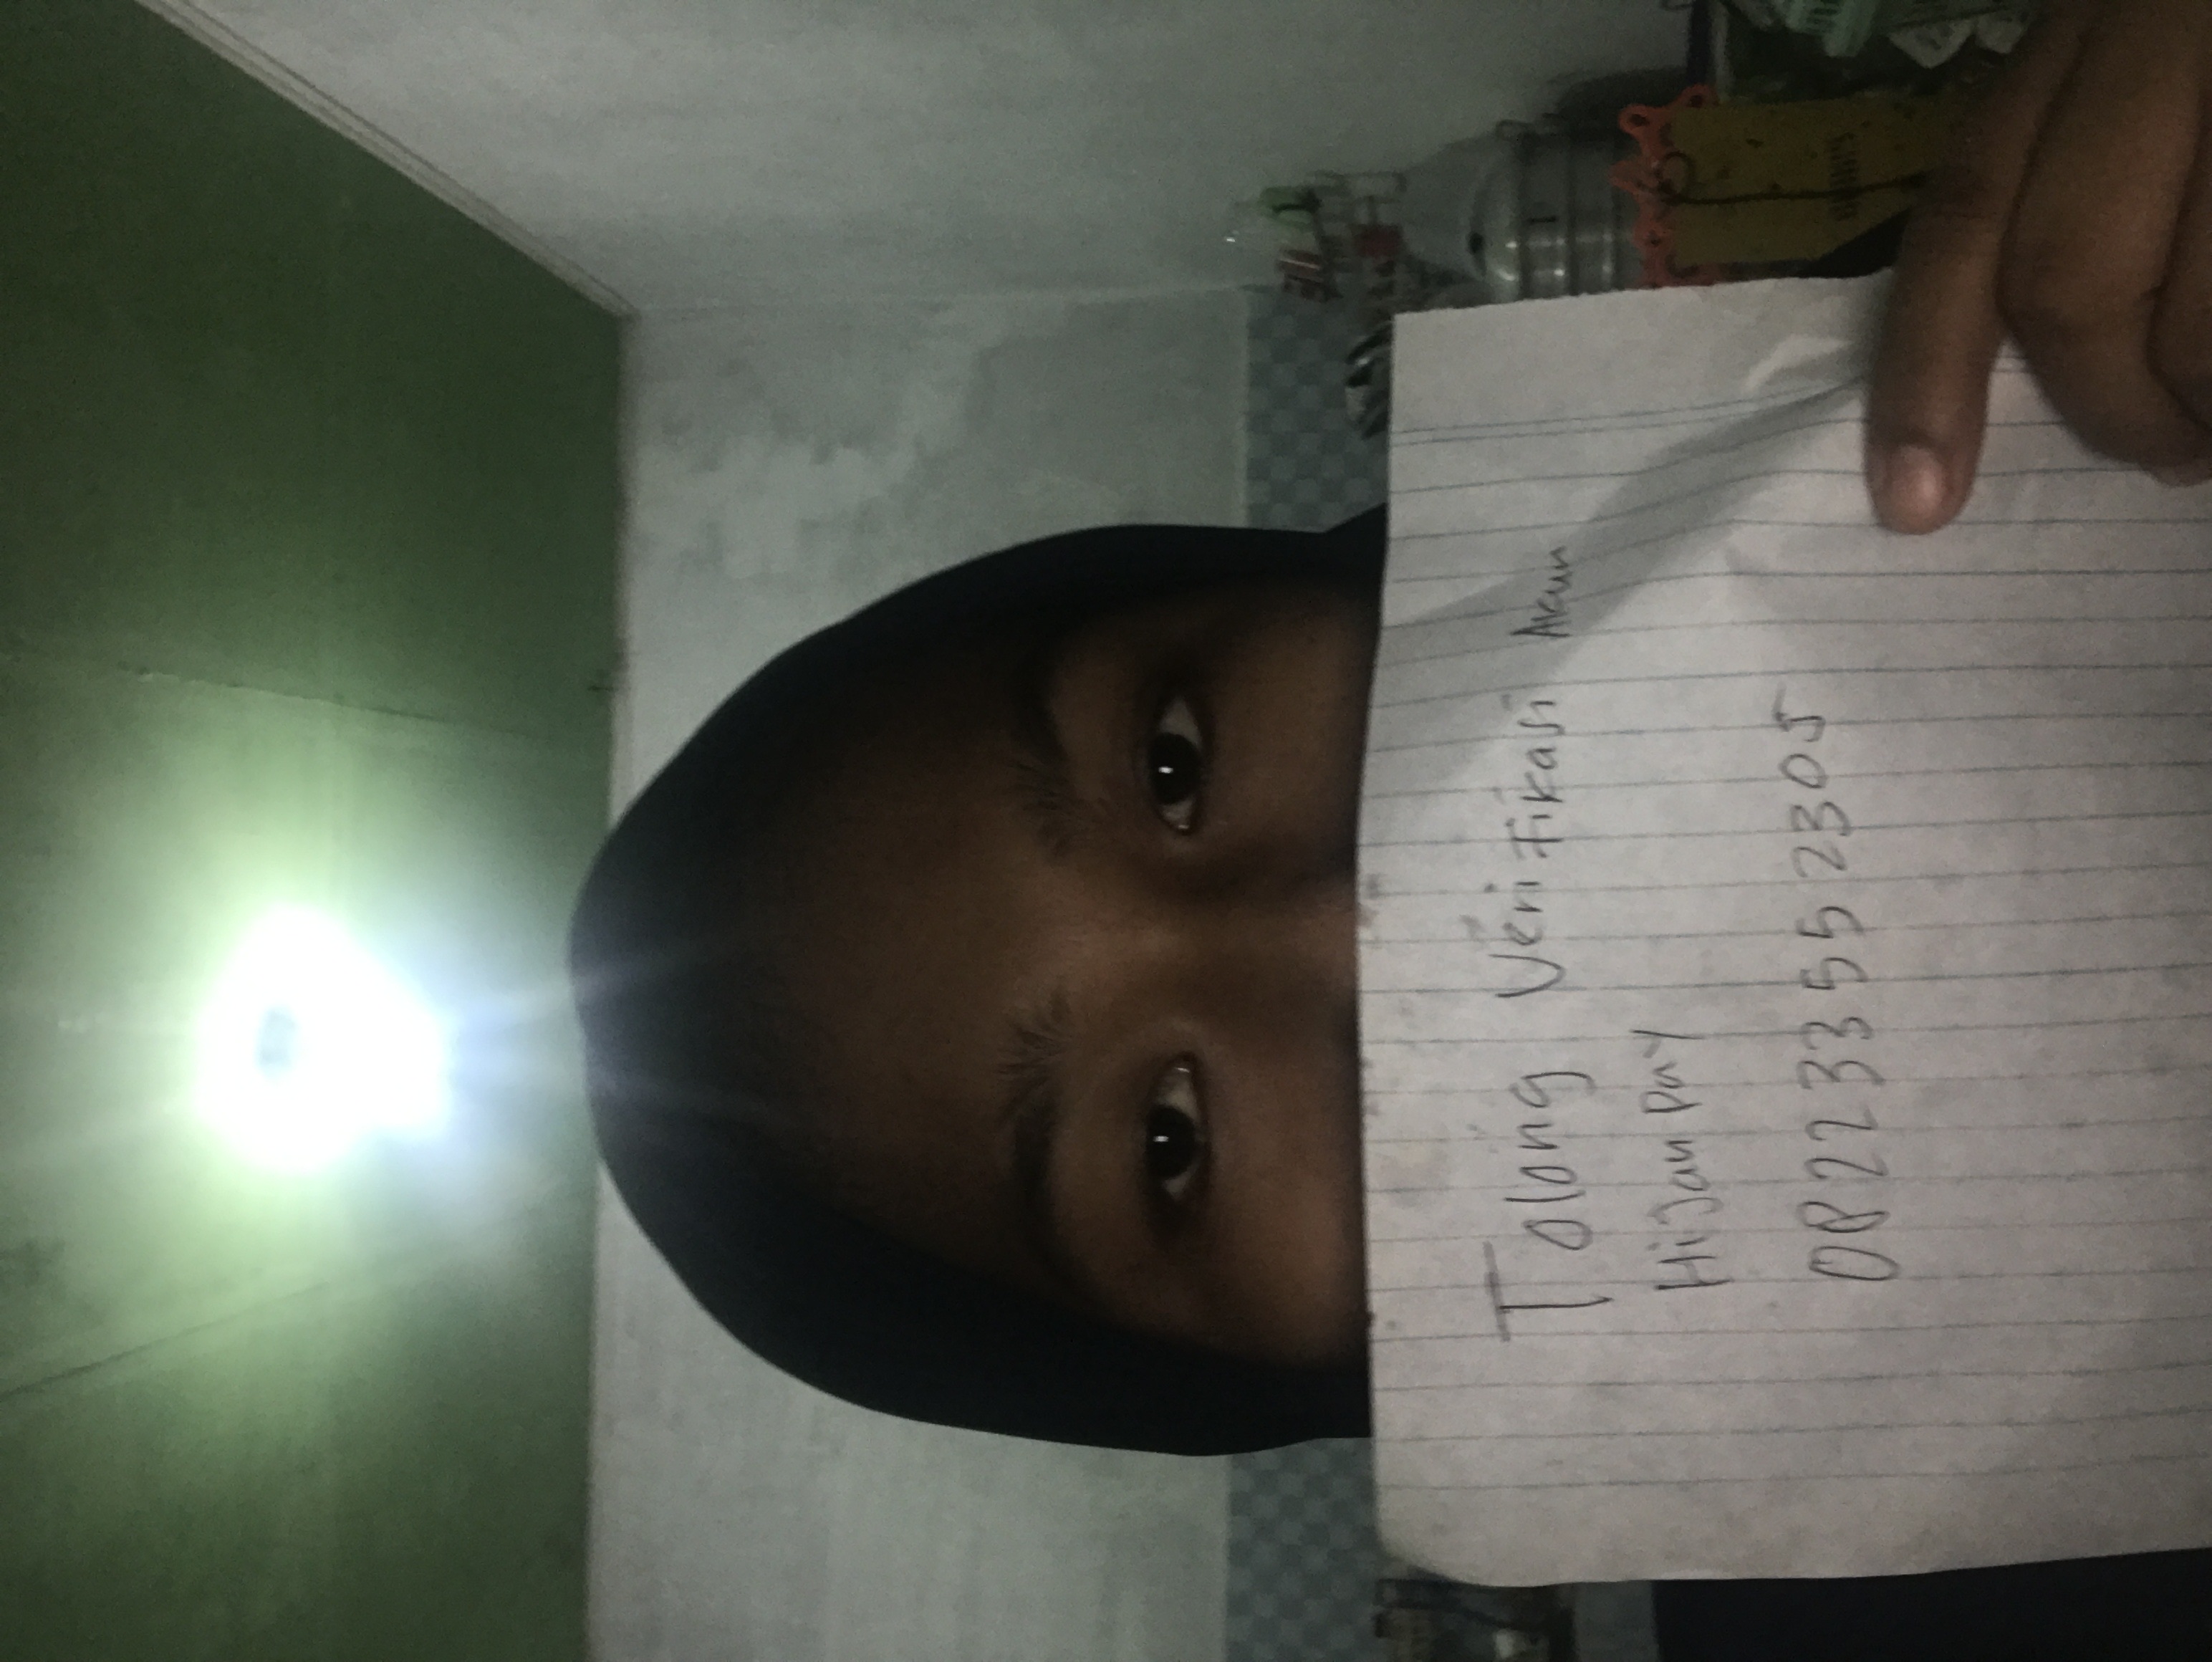 Tolong Verifikasi Akun
Hijau Pay
082233552305